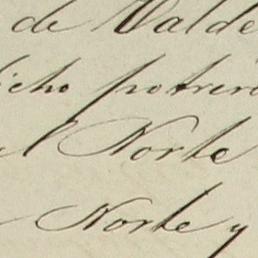 de Valde
dicho potrero
el Norte
Norte y